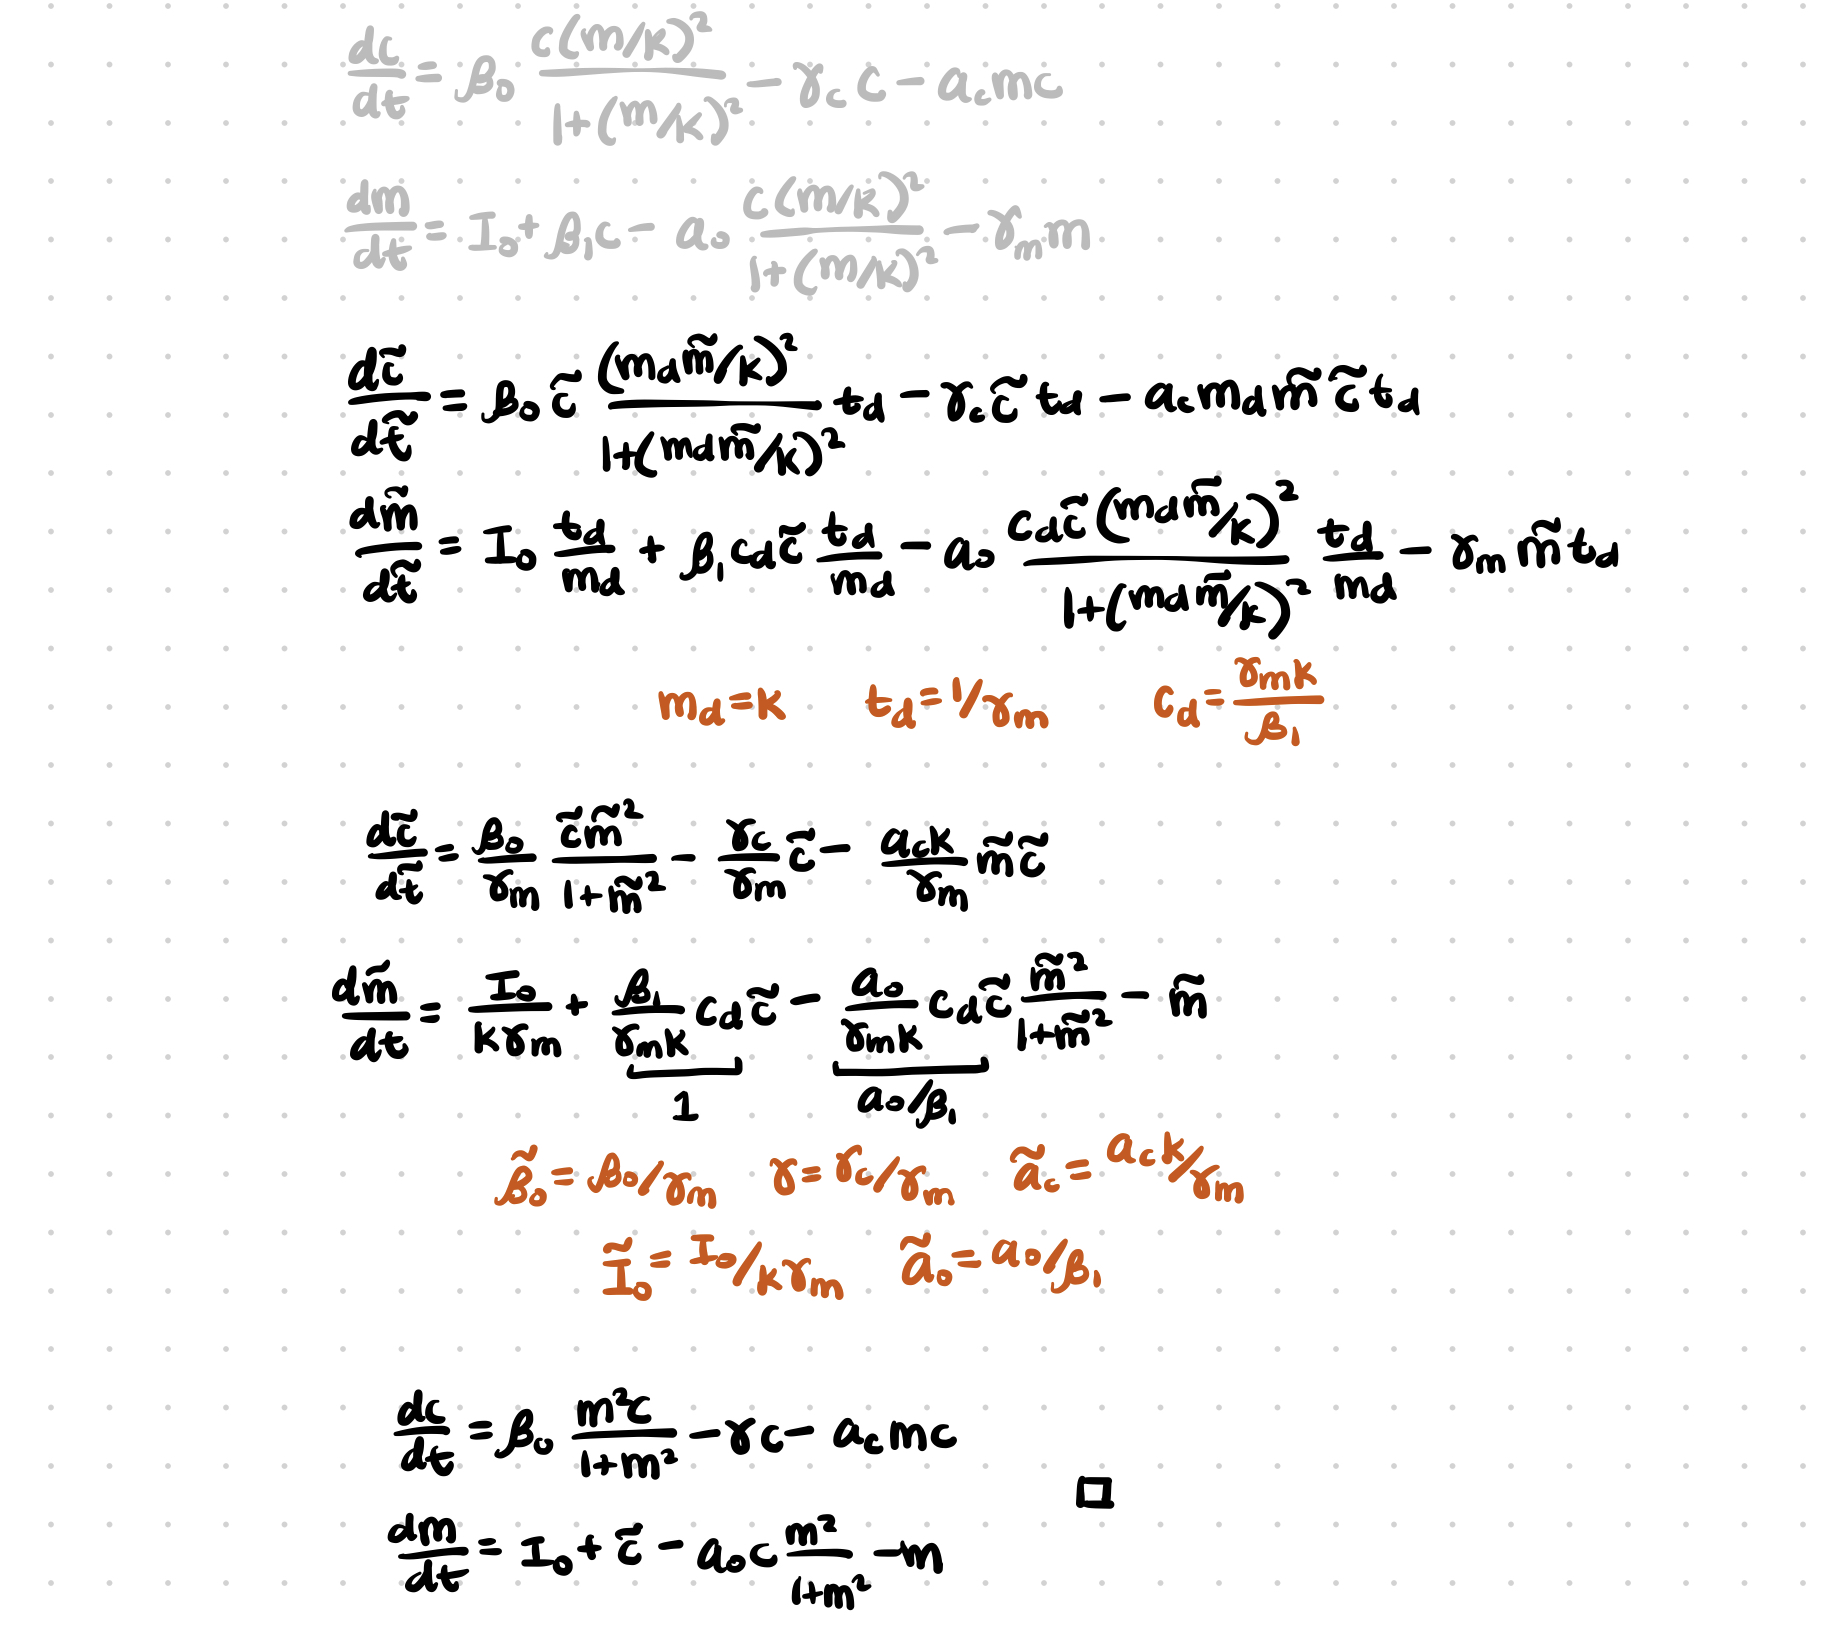 dc/dt = β₀ c(m/k)²/(1+(m/k)²) − γ_c c − a_c mc
dm/dt = I₀ + β₁c − a₀ c(m/k)²/(1+(m/k)²) − γ_m m
dc̃/dt̃ = β₀ c̃ (m_d m̃/k)²/(1+(m_d m̃/k)²) t_d − γ_c c̃ t_d − a_c m_d m̃ c̃ t_d
dm̃/dt̃ = I₀ t_d/m_d + β₁ c_d c̃ t_d/m_d − a₀ c_d c̃ (m_d m̃/k)²/(1+(m_d m̃/k)²) t_d/m_d − γ_m m̃ t_d
m_d = k t_d = 1/γ_m c_d = γ_m k/β₁
dc̃/dt̃ = β₀/γ_m c̃m̃²/(1+m̃²) − γ_c/γ_m c̃ − a_c k/γ_m m̃c̃
dm̃/dt = I₀/(kγ_m) + β₁/(γ_m k) c_d c̃ − a₀/(γ_m k) c_d c̃ m̃²/(1+m̃²) − m̃
1 a₀/β₁
β̃₀ = β₀/γ_m γ = γ_c/γ_m ã_c = a_c k/γ_m
Ĩ₀ = I₀/kγ_m ã₀ = a₀/β₁
dc/dt = β₀ m²c/(1+m²) − γc − a_c mc
□
dm/dt = I₀ + c̃ − a₀c m²/(1+m²) − m